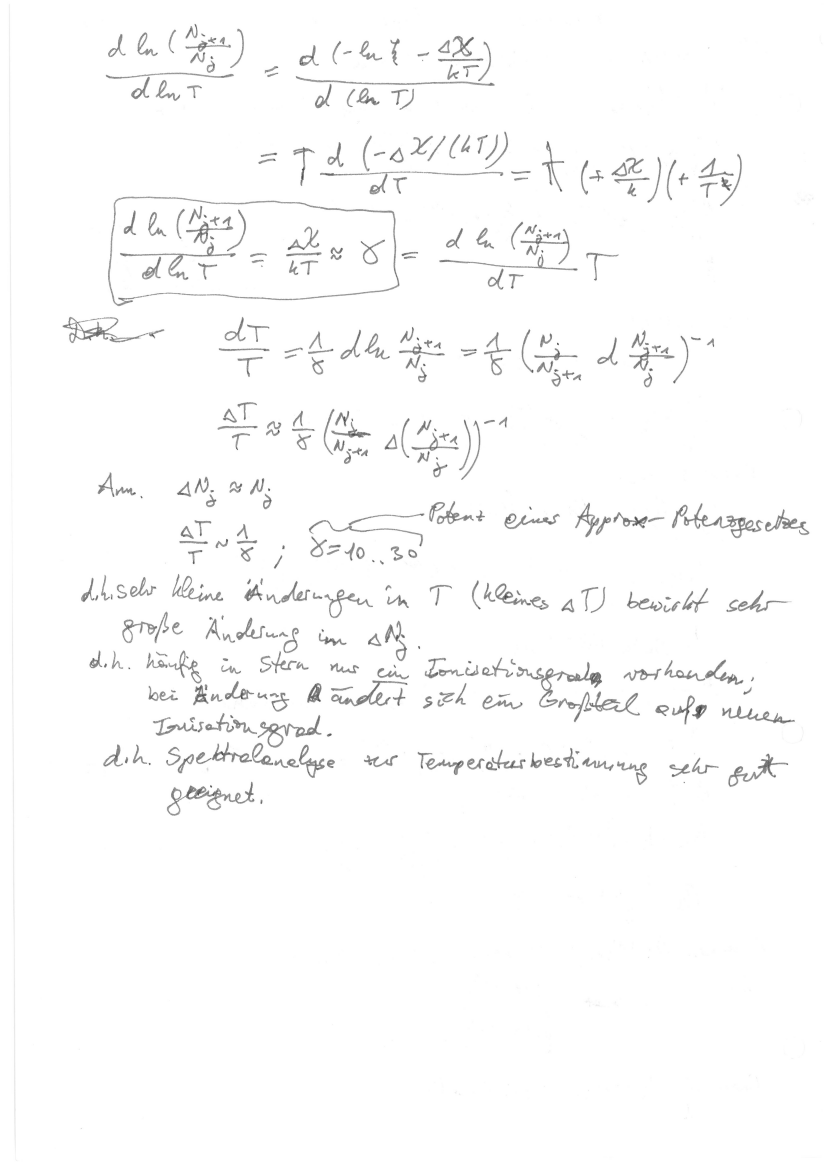 d ln (N_{j+1}/N_j) / d ln T = d (-ln ξ - ΔX/kT) / d (ln T)
= T d (-ΔX/(kT)) / dT = T (+ ΔX/k) (+ 1/T²)
d ln (N_{j+1}/N_j) / d ln T = ΔX/kT ≈ γ = d ln (N_{j+1}/N_j) / dT T
dT/T = 1/γ d ln N_{j+1}/N_j = 1/γ (N_j/N_{j+1} d N_{j+1}/N_j)^{-1}
ΔT/T ≈ 1/γ (N_j/N_{j+1} Δ(N_{j+1}/N_j))^{-1}
Ann. ΔN_j ≈ N_j
Potenz eines Approx-Potenzgesetzes
ΔT/T ~ 1/γ ; γ=10..30
d.h. sehr kleine Änderungen in T (kleines ΔT) bewirkt sehr
große Änderung im ΔN_j.
d.h. häufig in Stern nur ein Ionisationsgrad vorhanden;
bei Änderung ändert sich ein Großteil auf neuen
Ionisationsgrad.
d.h. Spektralanalyse zur Temperaturbestimmung sehr gut
geeignet.